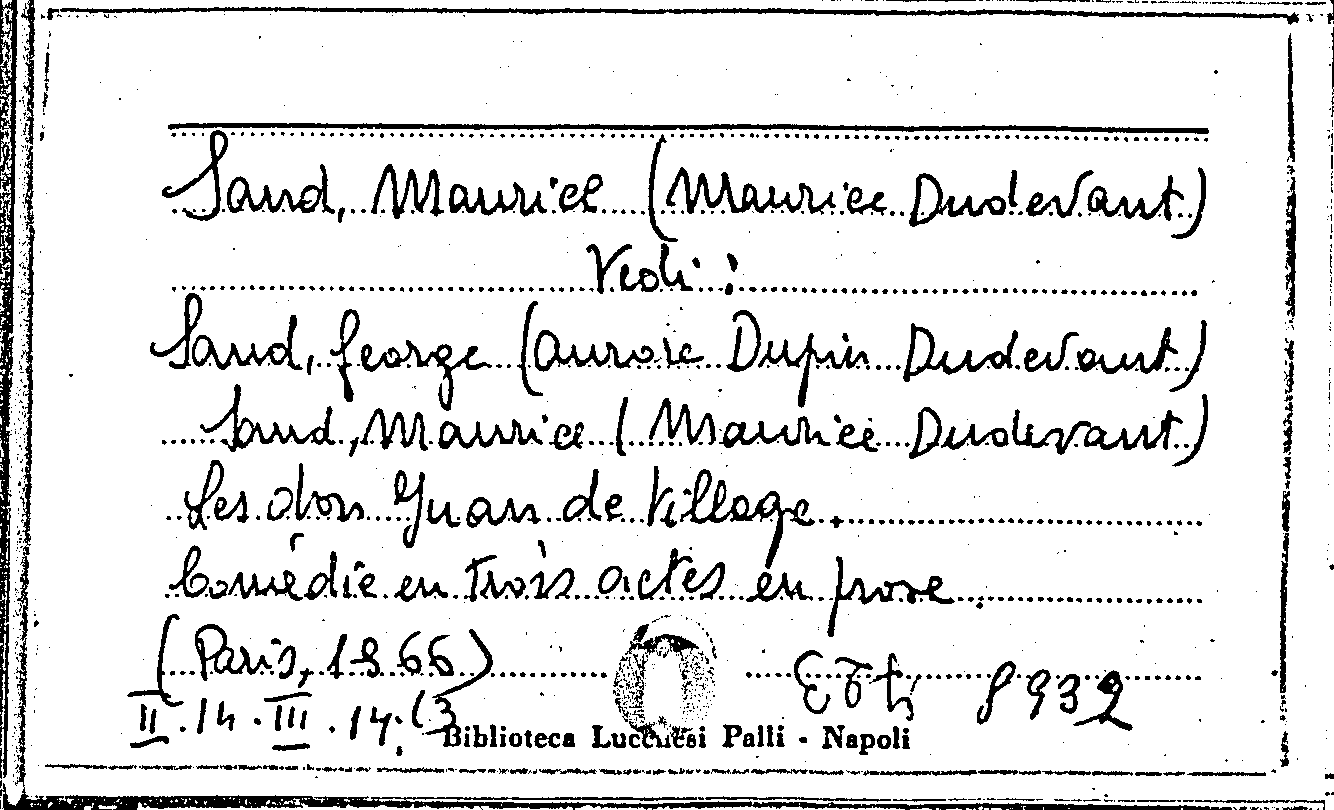 Sand, Maurice (Maurice Dudevant)
Vedi:
Sand, George (Aurore Dupin Dudevant)
Sand, Maurice (Maurice Dudevant)
Les don Juan de Village.
Comédie en trois actes en prose.
(Paris, 1866)
8932
II.14.III.14.(3
Biblioteca Lucchesi Palli - Napoli